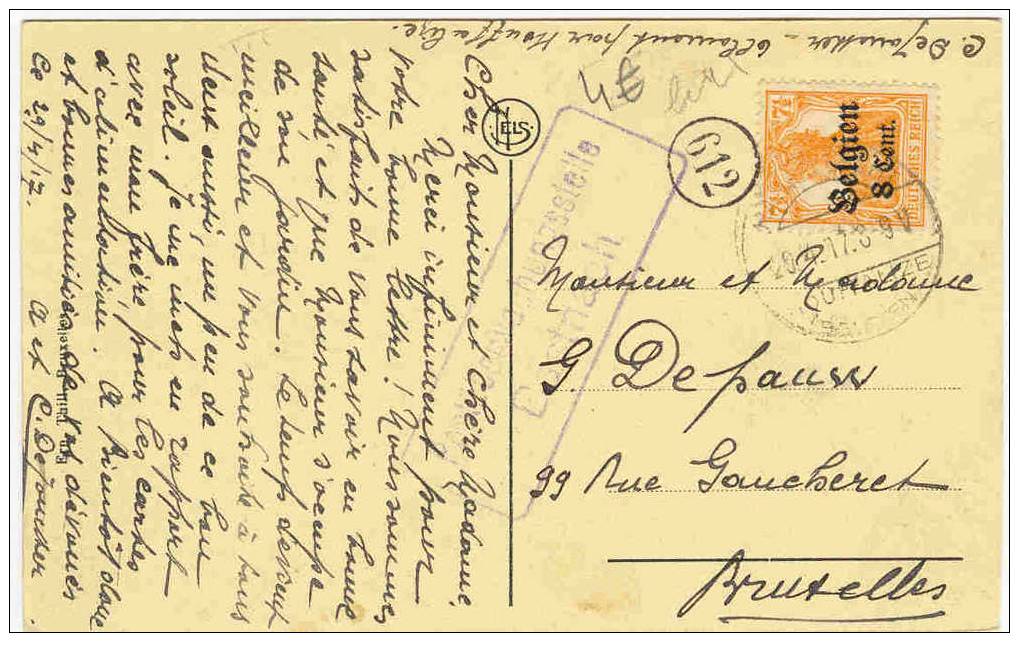 C. Dejoncker - pour Houffalize.
4€
NELS
612
7½ 7½
DEUTSCHES REICH
Belgien
8 Cent.
Monsieur et Madame
G. Depauw
99 Rue Gaucheret
Bruxelles
Cher Monsieur et Chère Madame,
Merci infiniment pour
votre bonne lettre! Nous sommes
satisfaits de vous savoir en bonne
santé et que Monsieur s'occupe
de son jardin. Le temps devient
meilleur et vous souhaite à tous
deux aussi, un peu de ce bon
soleil. Je me mets en rapport
avec mon frère pour les cartes
d'alimentation. A Bientôt donc
et bonnes amitiés de vos dévoués
Ce 29/4/17. A et
C. Dejoncker